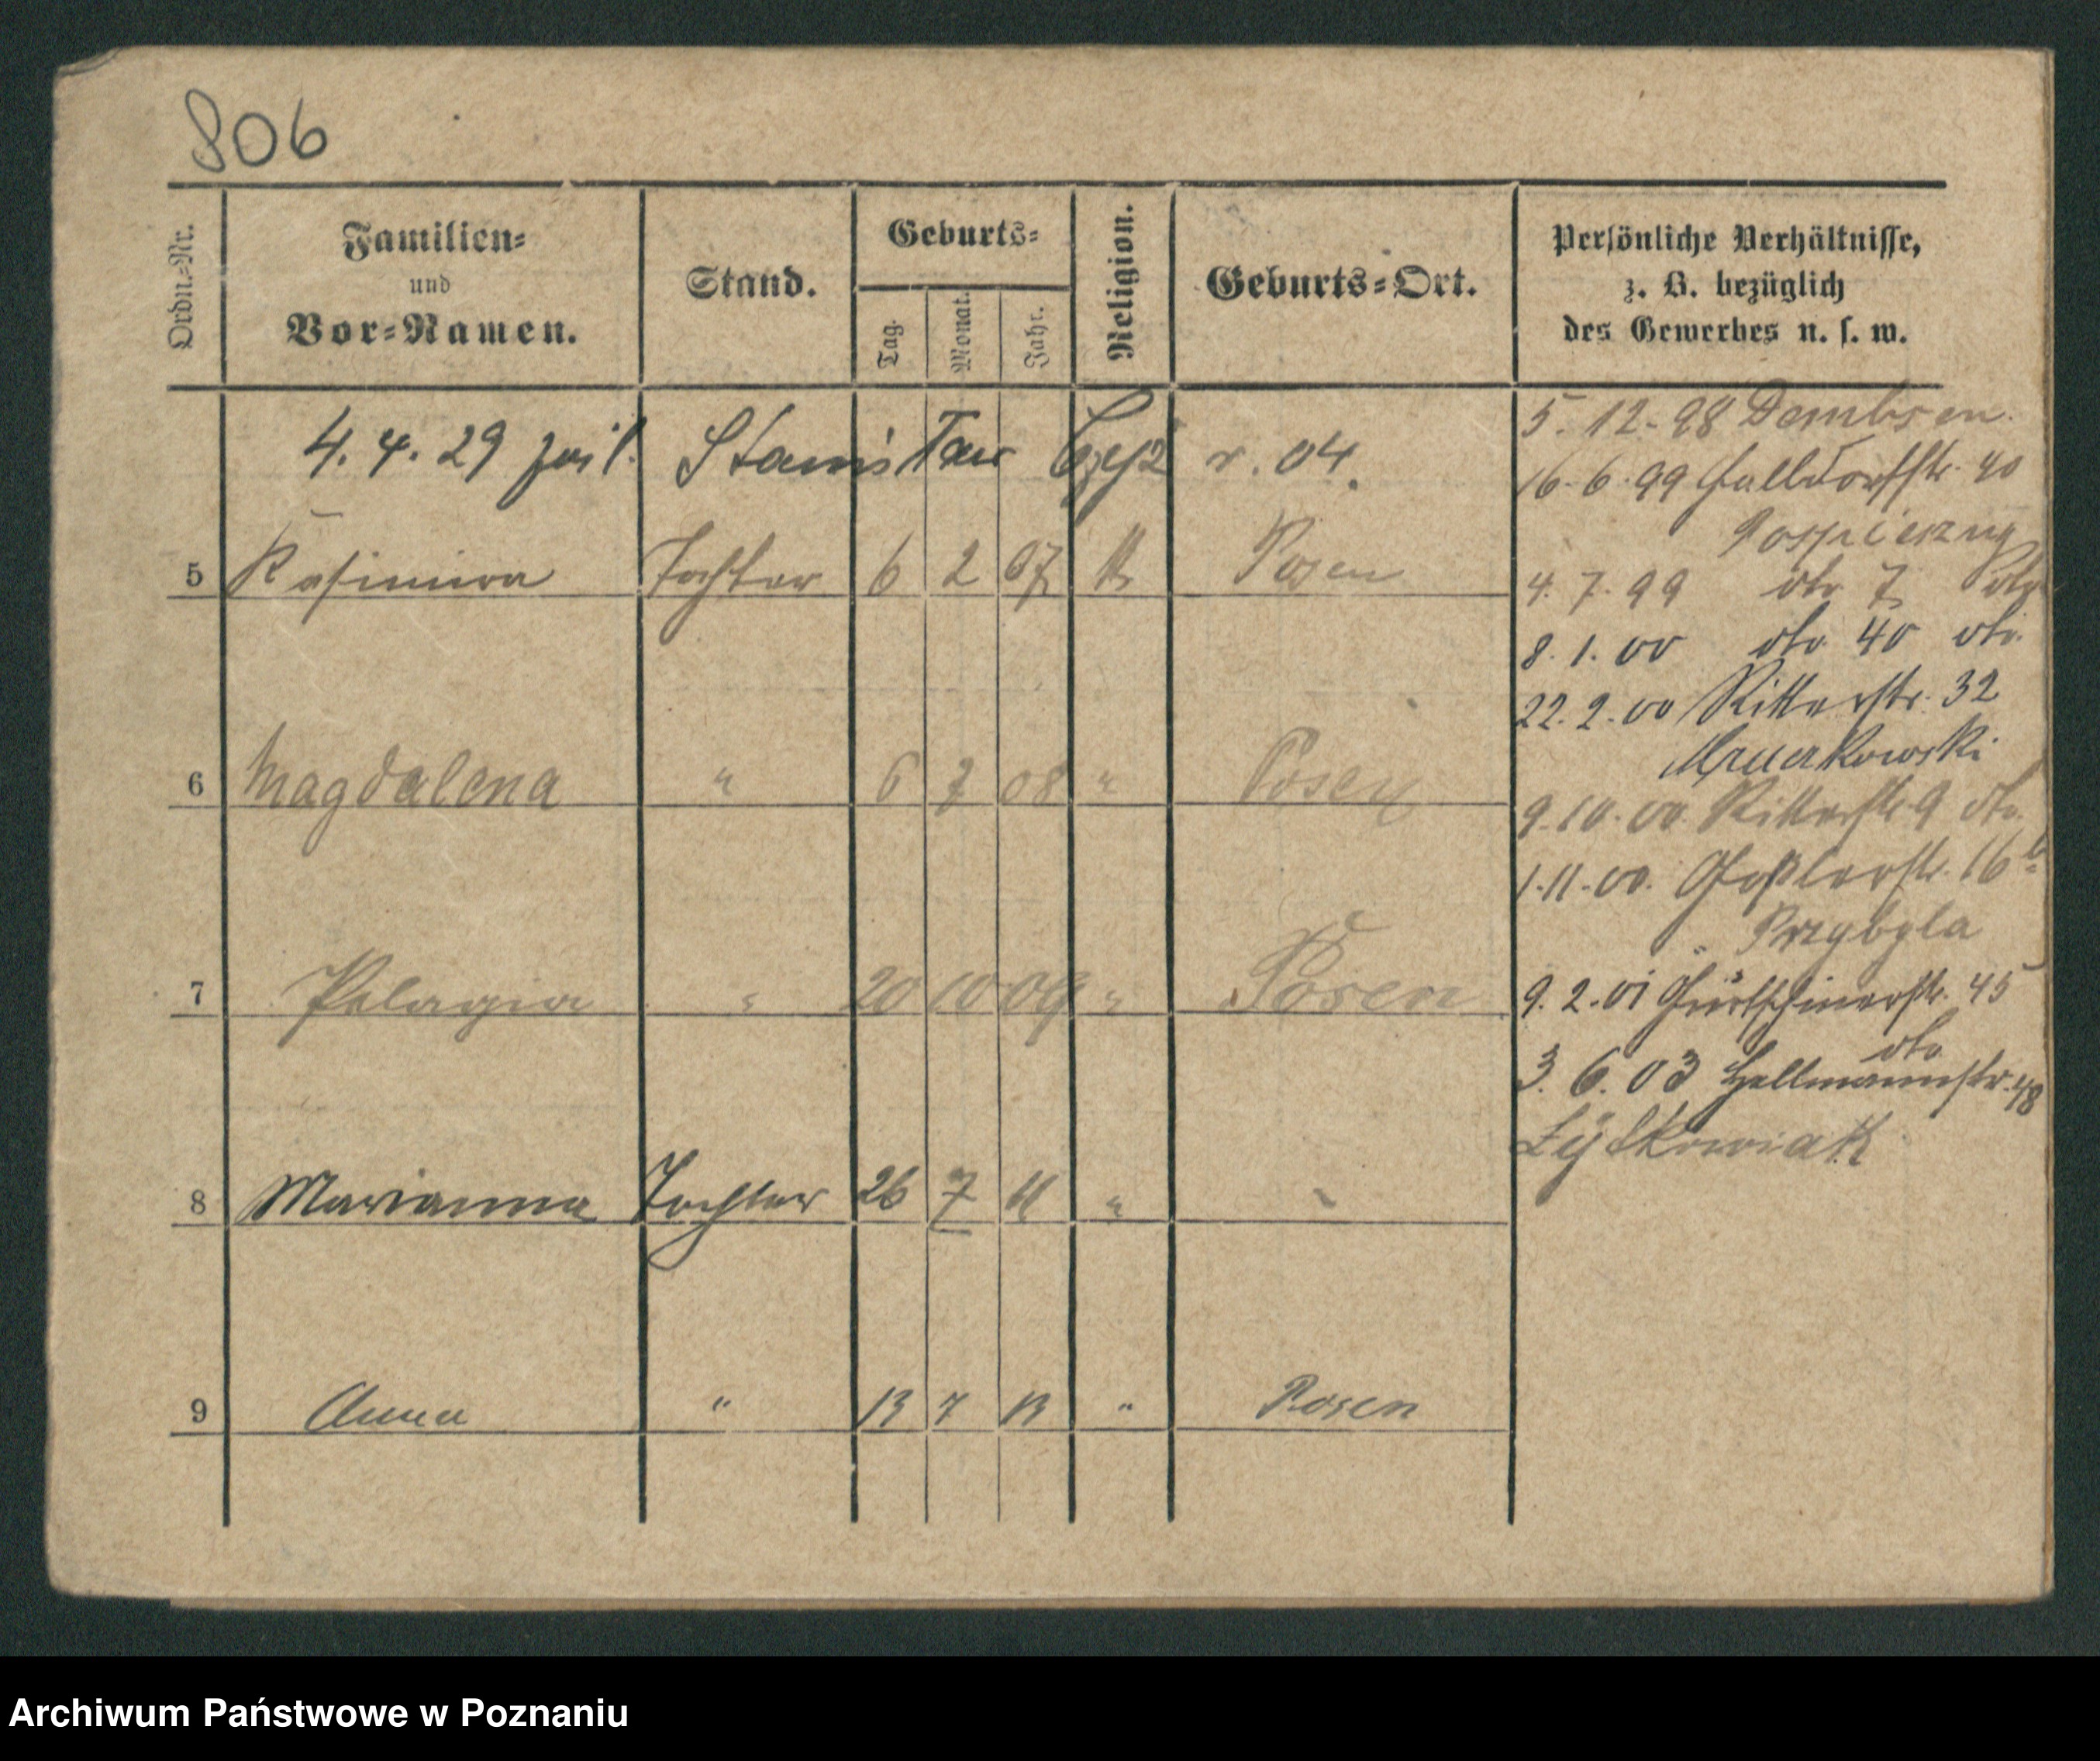 806
Ordn.-Nr.
Familien-
und
Vor-Namen.
Stand.
Geburts-
Tag.
Monat.
Jahr.
Religion.
Geburts-Ort.
Persönliche Verhältnisse,
z. B. bezüglich
des Gewerbes u. s. w.
4. 4. 29 r. 04.
5 Kasimira Tochter 6 2 07 k Posen
6 Magdalena " 6 7 08 " Posen
7 Pelagia " 20 10 09 " Posen
8 Marianna Tochter 26 7 11 " "
9 Anna " 13 7 13 " Posen
5. 12. 98 Dembsen.
16. 6. 99 Halldorfstr. 40
4. 7. 99 dto 7
8. 1. 00 dto 40 dto.
22. 2. 00 Ritterstr. 32
9. 10. 00. Ritterstr. 9 dto.
1. 11. 00. Goßlerstr. 16
Przybyla
9. 2. 01 Gurtschinerstr. 45
dto
3. 6. 03 Hellmannstr. 48
Archiwum Państwowe w Poznaniu